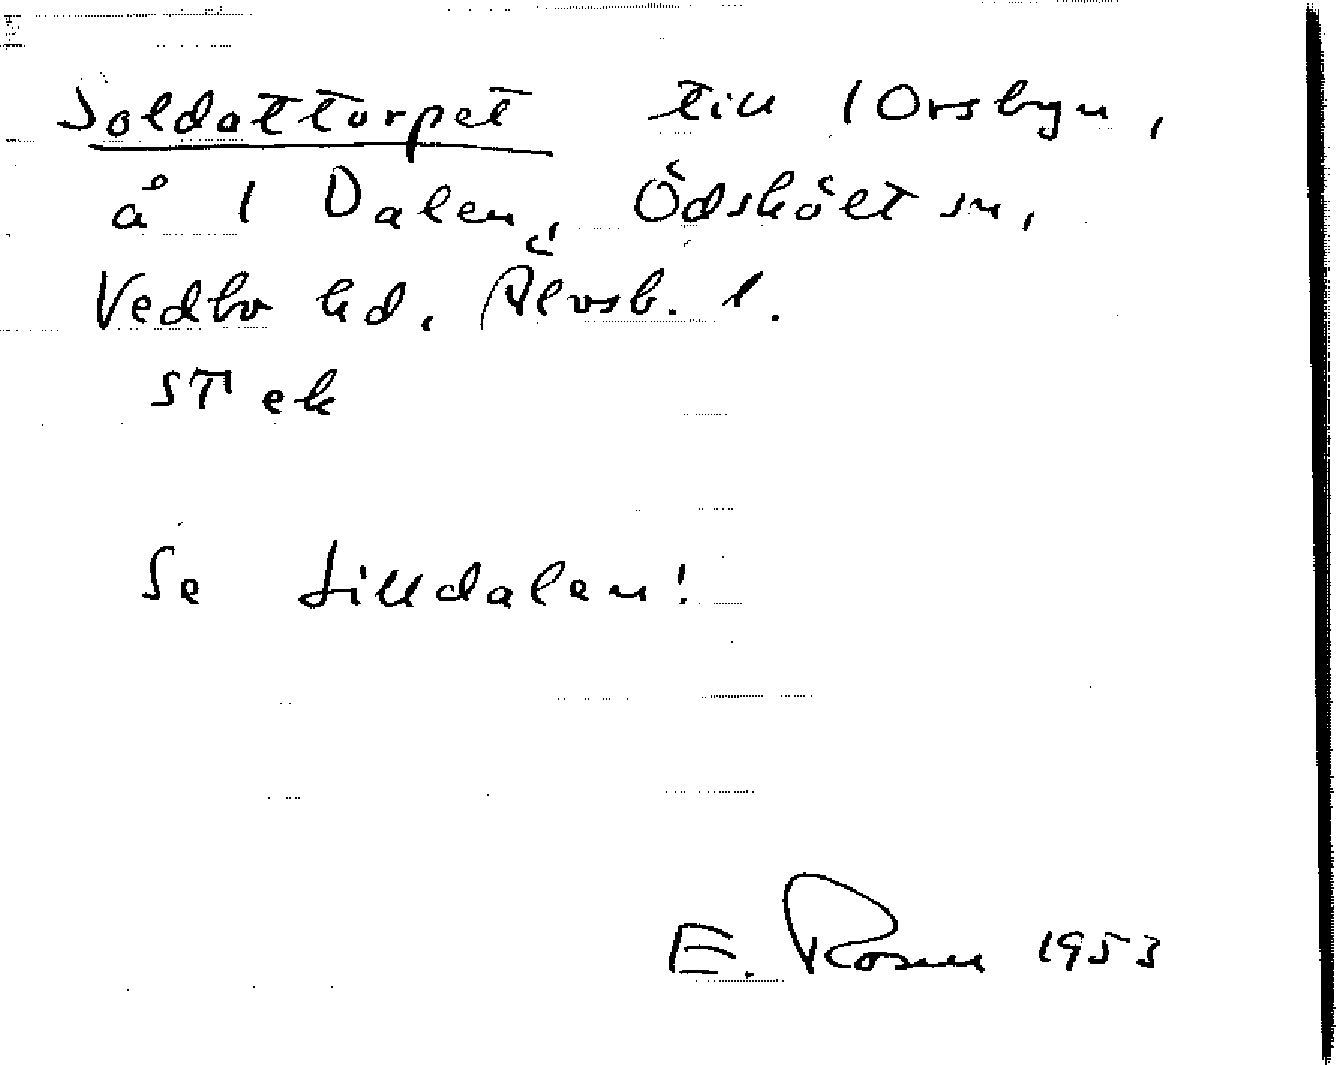 Soldattorpet till 1 Orsbyn,
å 1 Dalen, Ödskölt sn,
Vedbo hd, Älvsb. l.
ST ek
Se Lilldalen!
E. Rosell 1953